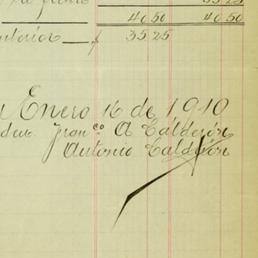 40 50 40 50
$ 35 25
Enero 16 de 1910
Franco A Calderón
Antonio Calderón